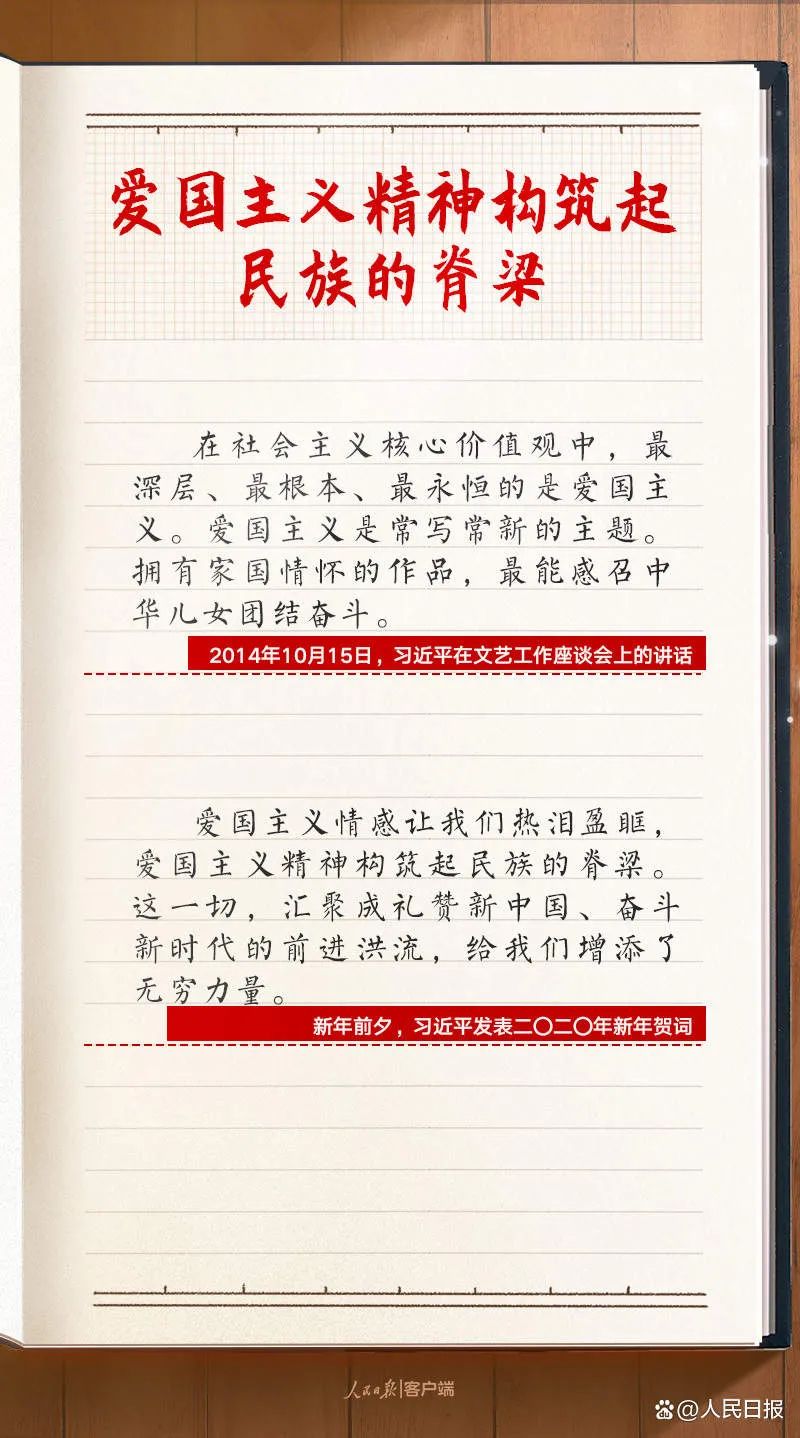 爱国主义精神构筑起
民族的脊梁
在社会主义核心价值观中，最
深层、最根本、最永恒的是爱国主
义。爱国主义是常写常新的主题。
拥有家国情怀的作品，最能感召中
华儿女团结奋斗。
2014年10月15日，习近平在文艺工作座谈会上的讲话
爱国主义情感让我们热泪盈眶，
爱国主义精神构筑起民族的脊梁。
这一切，汇聚成礼赞新中国、奋斗
新时代的前进洪流，给我们增添了
无穷力量。
新年前夕，习近平发表二〇二〇年新年贺词
人民日报|客户端
@人民日报